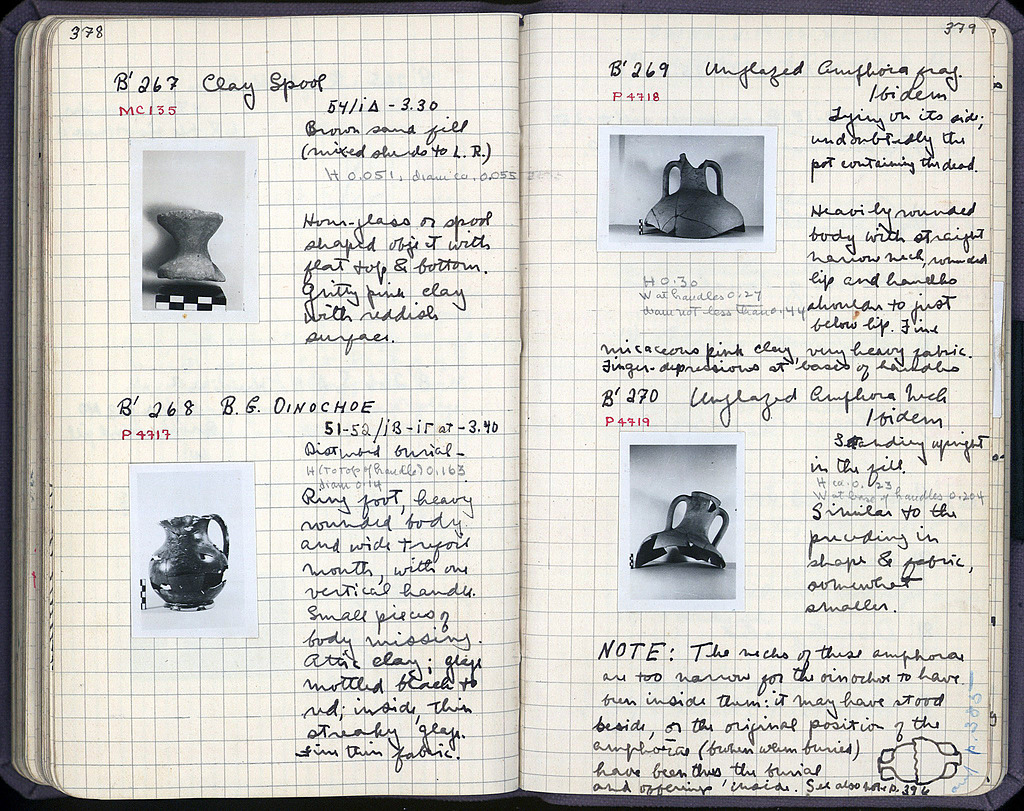 378
B' 267 Clay Spool
MC 135
54/ιΔ - 3.30
Brown sand fill
(mixed sherds to L.R.)
H 0.051, diam ca. 0.055
Hour-glass or spool
shaped object with
flat top & bottom.
Gritty pink clay
with reddish
surface.
B' 268 B.G. OINOCHOE
P 4717
51-52/ιB-ιΓ at -3.40
Disturbed burial-
H (to top of handle) 0.163
diam 0.14
Ring foot, heavy
rounded body
and wide trefoil
mouth, with one
vertical handle.
Small pieces of
body missing.
Attic clay; glaze
mottled black to
red; inside, thin
streaky glaze.
Firm thin fabric.
379
B' 269 Unglazed Amphora frag.
P 4718
Ibidem
Lying on its side;
undoubtedly the
pot containing the dead.
Heavily rounded
body with straight
narrow neck, rounded
lip and handles
shoulder to just
below lip. Fine
H 0.30
W at handles 0.27
diam not less than 0.44
micaceous pink clay, very heavy fabric.
Finger-depressions at bases of handles
B' 270 Unglazed Amphora Neck
P 4719
Ibidem
Standing upright
in the fill.
H ca. 0.123
W at base of handles 0.204
Similar to the
preceding in
shape & fabric,
somewhat
smaller.
NOTE: The necks of these amphorae
are too narrow for the oinochoe to have
been inside them: it may have stood
beside, or the original position of the
amphorae (broken when buried)
have been thus, the burial
and offerings inside. See also note p. 396